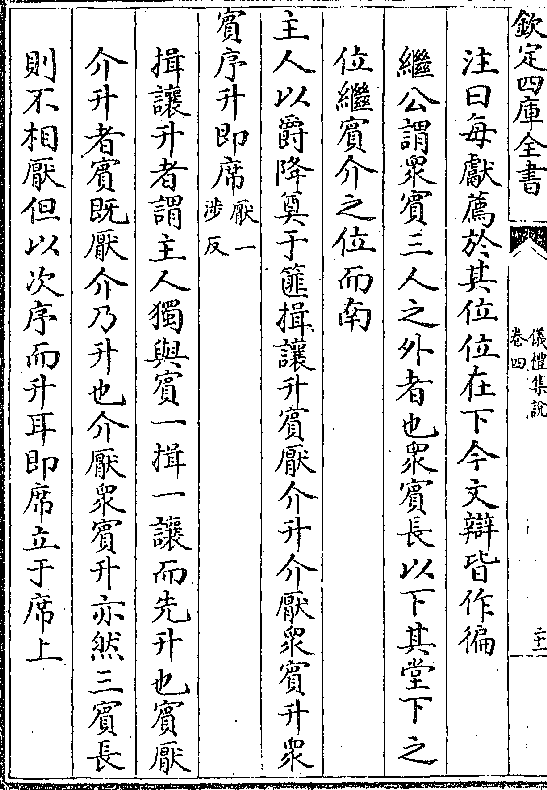 欽定四庫全書
儀禮集說
卷四
二十二
注曰每獻薦於其位位在下今文辯皆作徧
繼公謂衆賓三人之外者也衆賓長以下其堂下之
位繼賓介之位而南
主人以爵降奠于篚揖讓升賓厭介升介厭衆賓升衆
賓序升即席厭一
涉反
揖讓升者謂主人獨與賓一揖一讓而先升也賓厭
介升者賓既厭介乃升也介厭衆賓升亦然三賓長
則不相厭但以次序而升耳即席立于席上